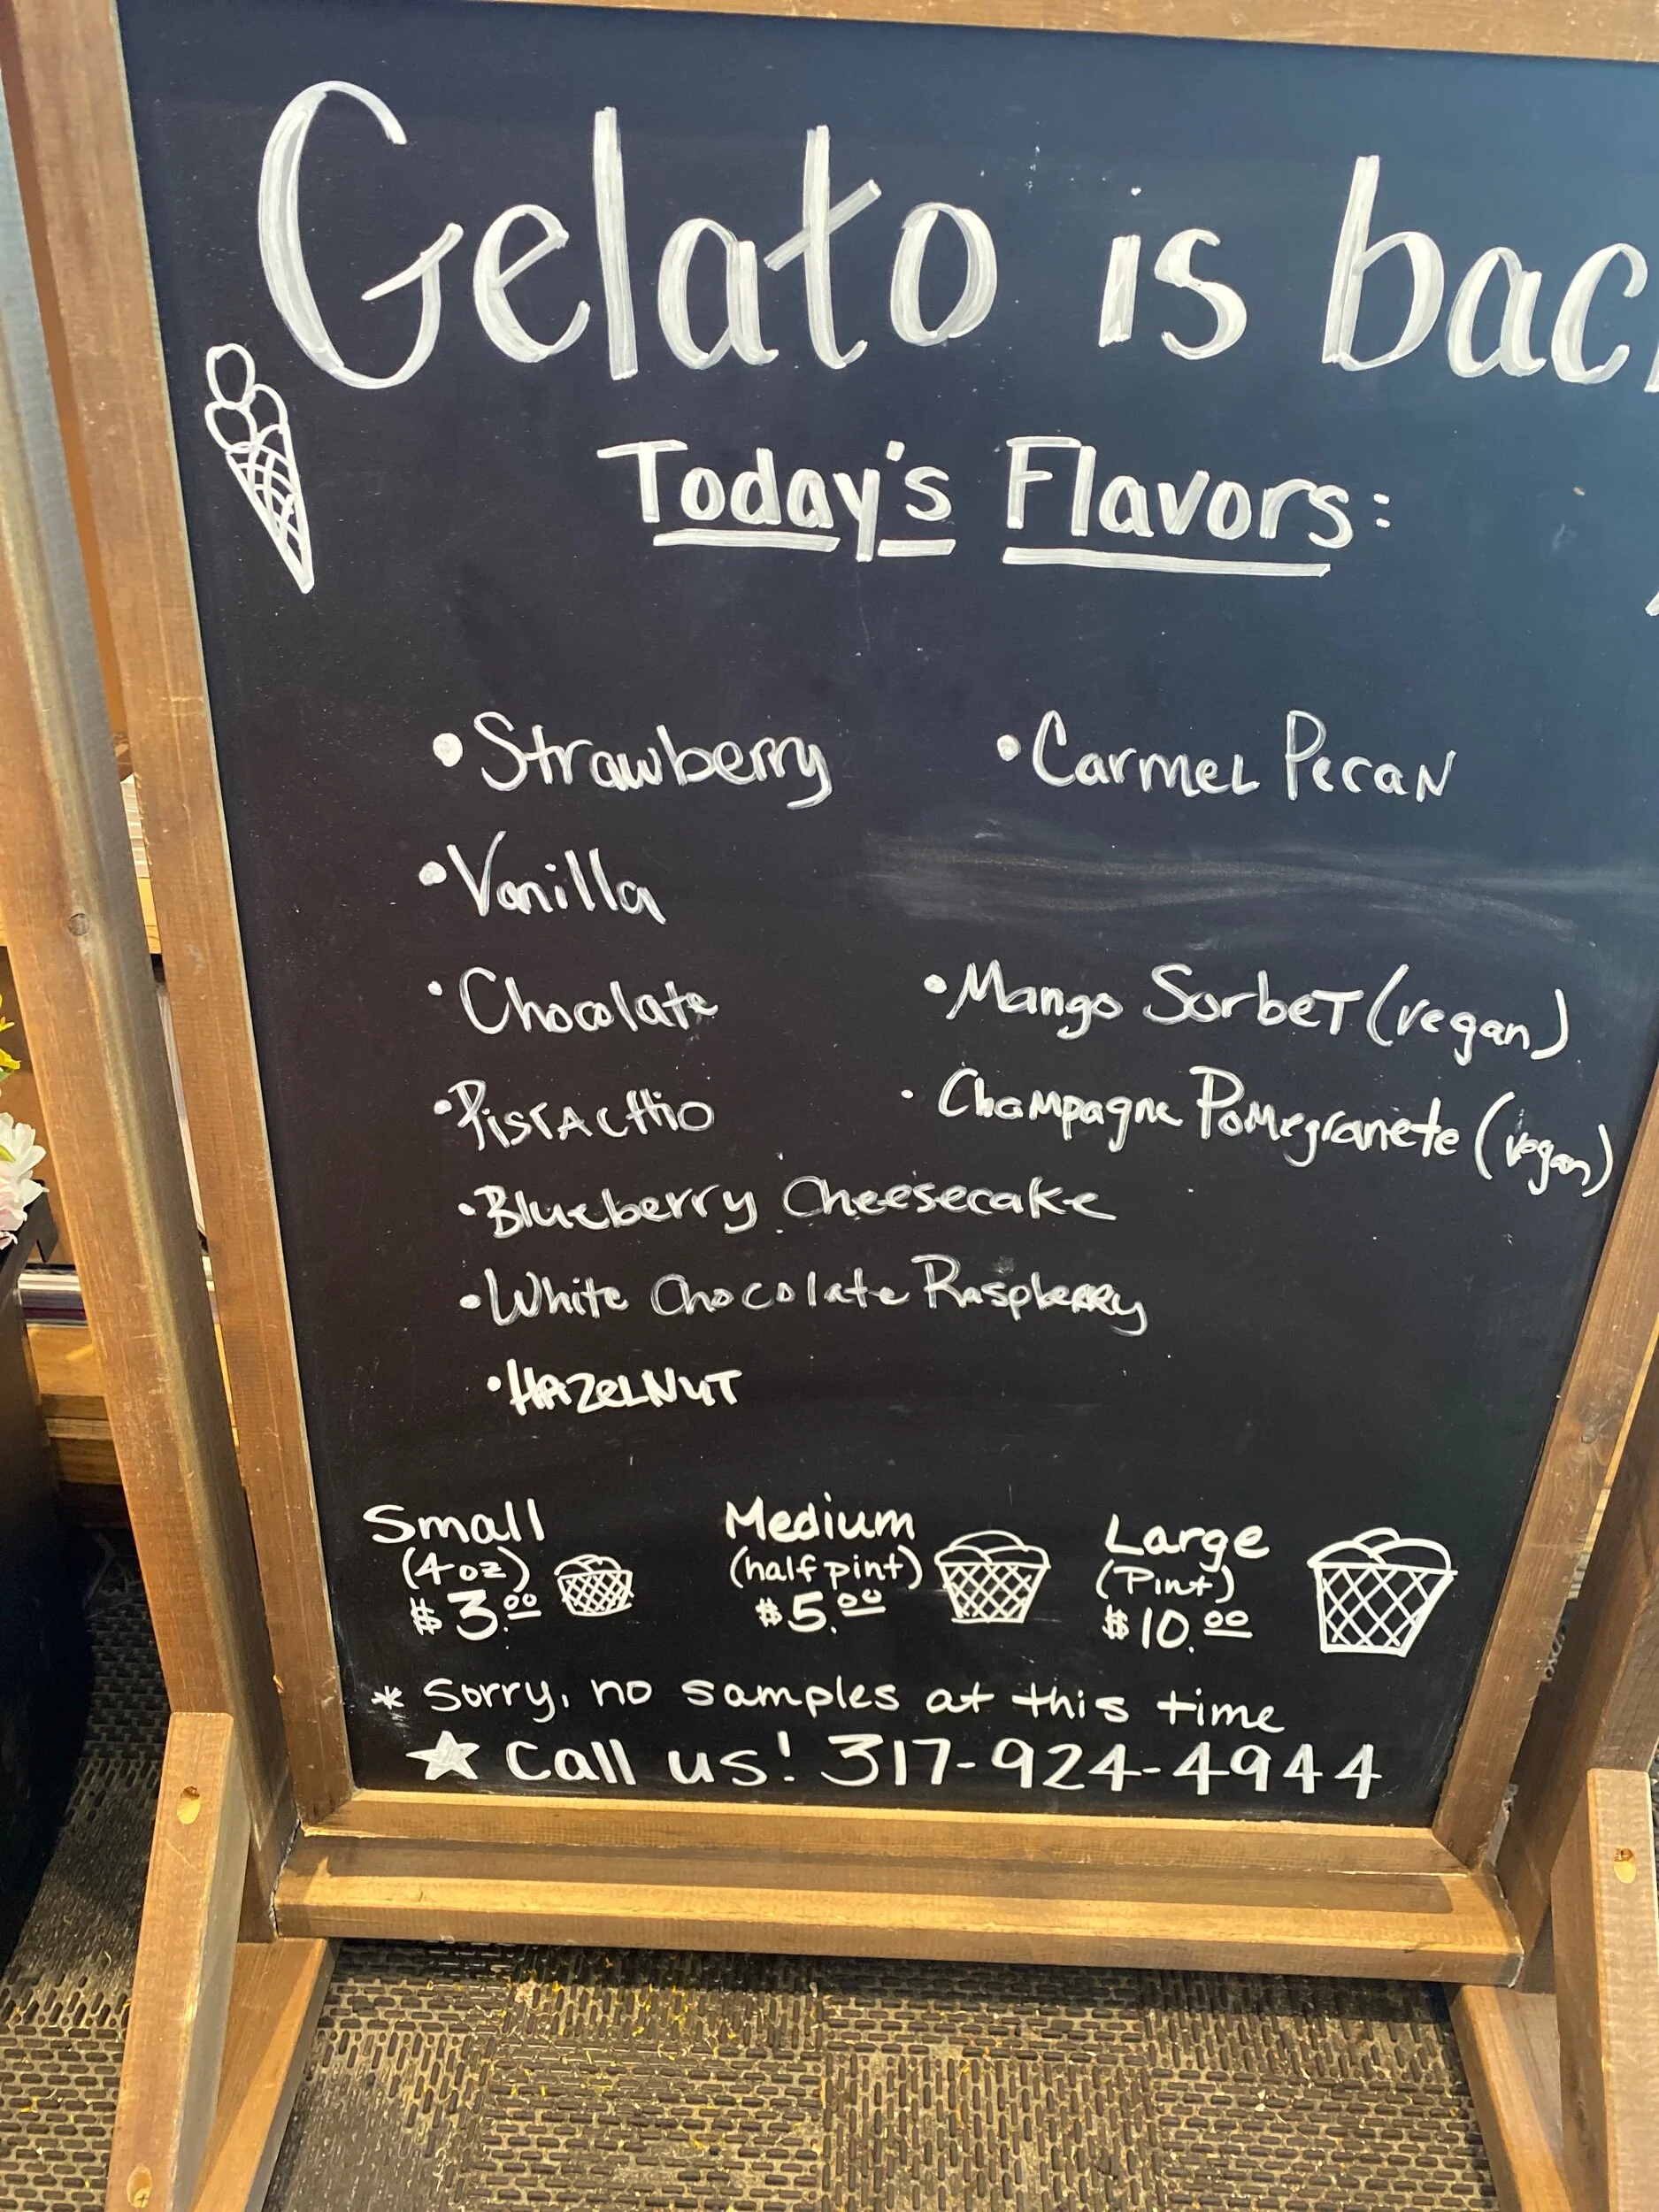 Gelato is bac
Today's Flavors:
• Strawberry
• Vanilla
• Chocolate
• Pistachio
• Blueberry Cheesecake
• White Chocolate Raspberry
• HAZELNUT
• Carmel Pecan
• Mango Sorbet (vegan)
• Champagne Pomegranete (vegan)
Small
(4 oz)
$3.00
Medium
(half pint)
$5.00
Large
(Pint)
$10.00
* Sorry, no samples at this time
★ Call us! 317-924-4944